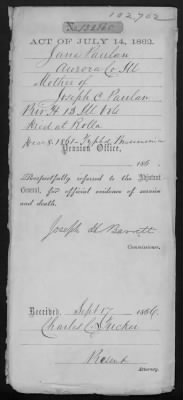 102,702
No.
ACT OF JULY 14, 1862.
Jane Paulan
Aurora Co Ill
Mother of
Joseph C Paulan
Priv H 13 Ill
Died at Rolla
Pension Office,
186 .
Respectfully referred to the Adjutant
General, for official evidence of service
and death.
Joseph H Barrett
Commissioner.
Received, Sept 17 186
Charles C Tucker
Resent
Attorney.